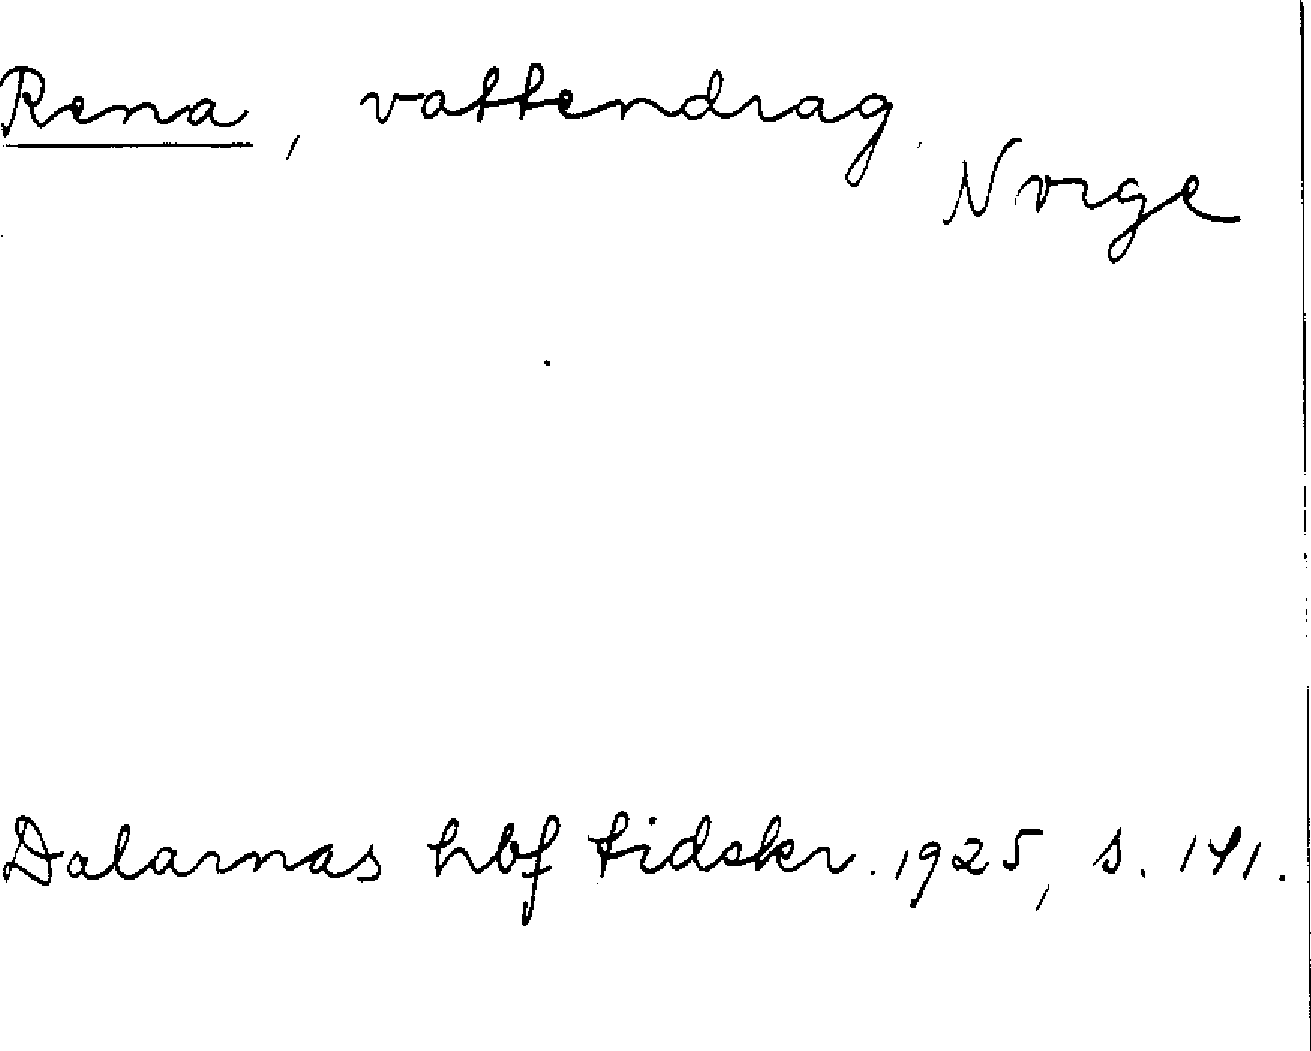 Rena, vattendrag.
Norge
Dalarnas hbf tidskr. 1925, s. 141.